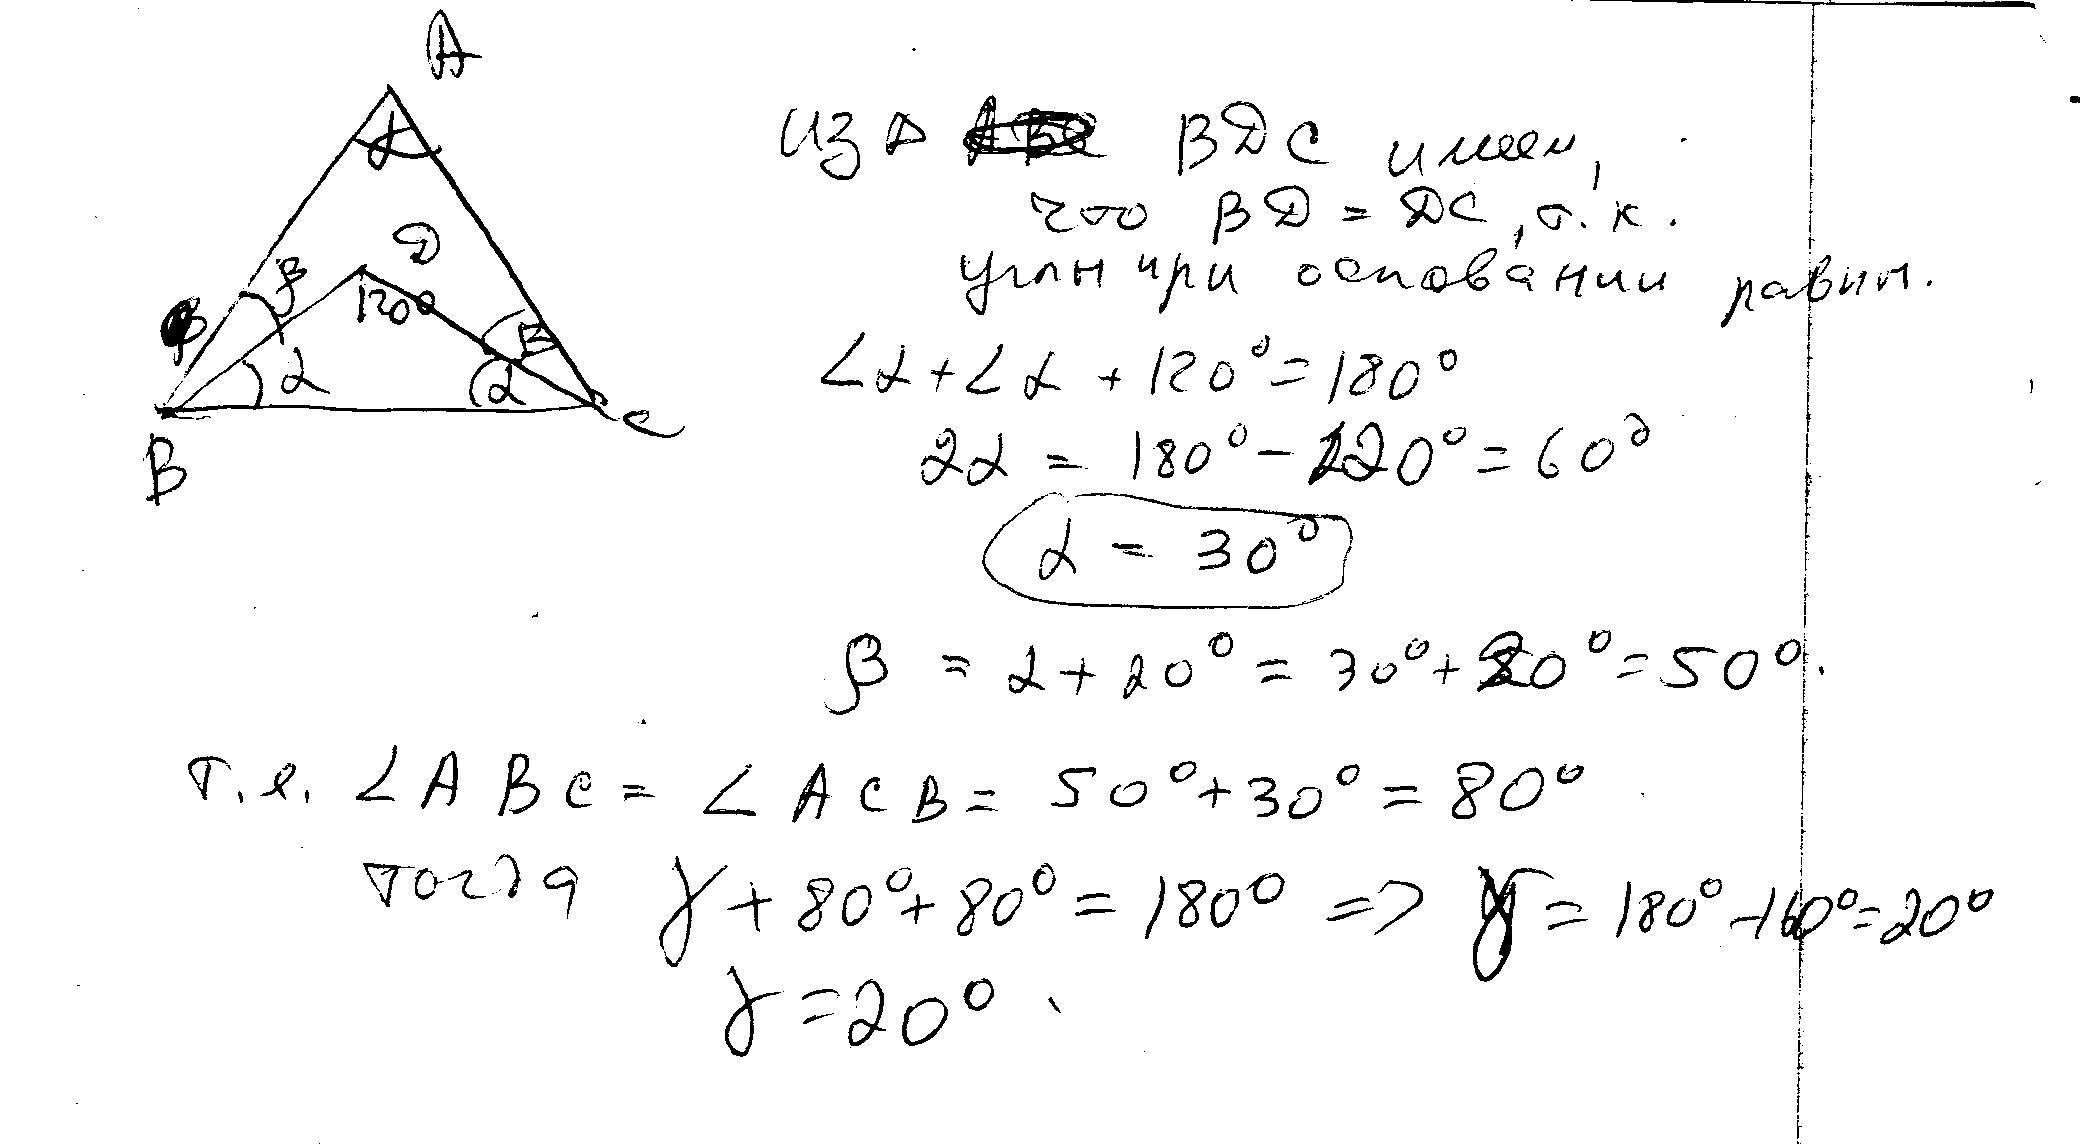 A
γ
Д
β
120°
β
α
α
B
C
из Δ BДC имеем,
что BД = ДC, т.к.
углы при основании равны.
∠α + ∠α + 120° = 180°
2α = 180° - 120° = 60°
α = 30°
β = α + 20° = 30° + 20° = 50°.
т.е. ∠ABC = ∠ACB = 50° + 30° = 80°
тогда γ + 80° + 80° = 180° => γ = 180° - 160° = 20°
γ = 20°.